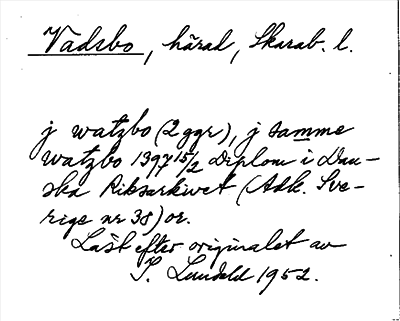 Vadsbo, härad, Skarab. l.
j watzbo (2 ggr), j samme
watzbo 1397 15/2 Diplom i Dan-
ska Riksarkivet (Adk. Sve-
rige nr 38) or.
Läst efter originalet av
I. Lundahl 1952.